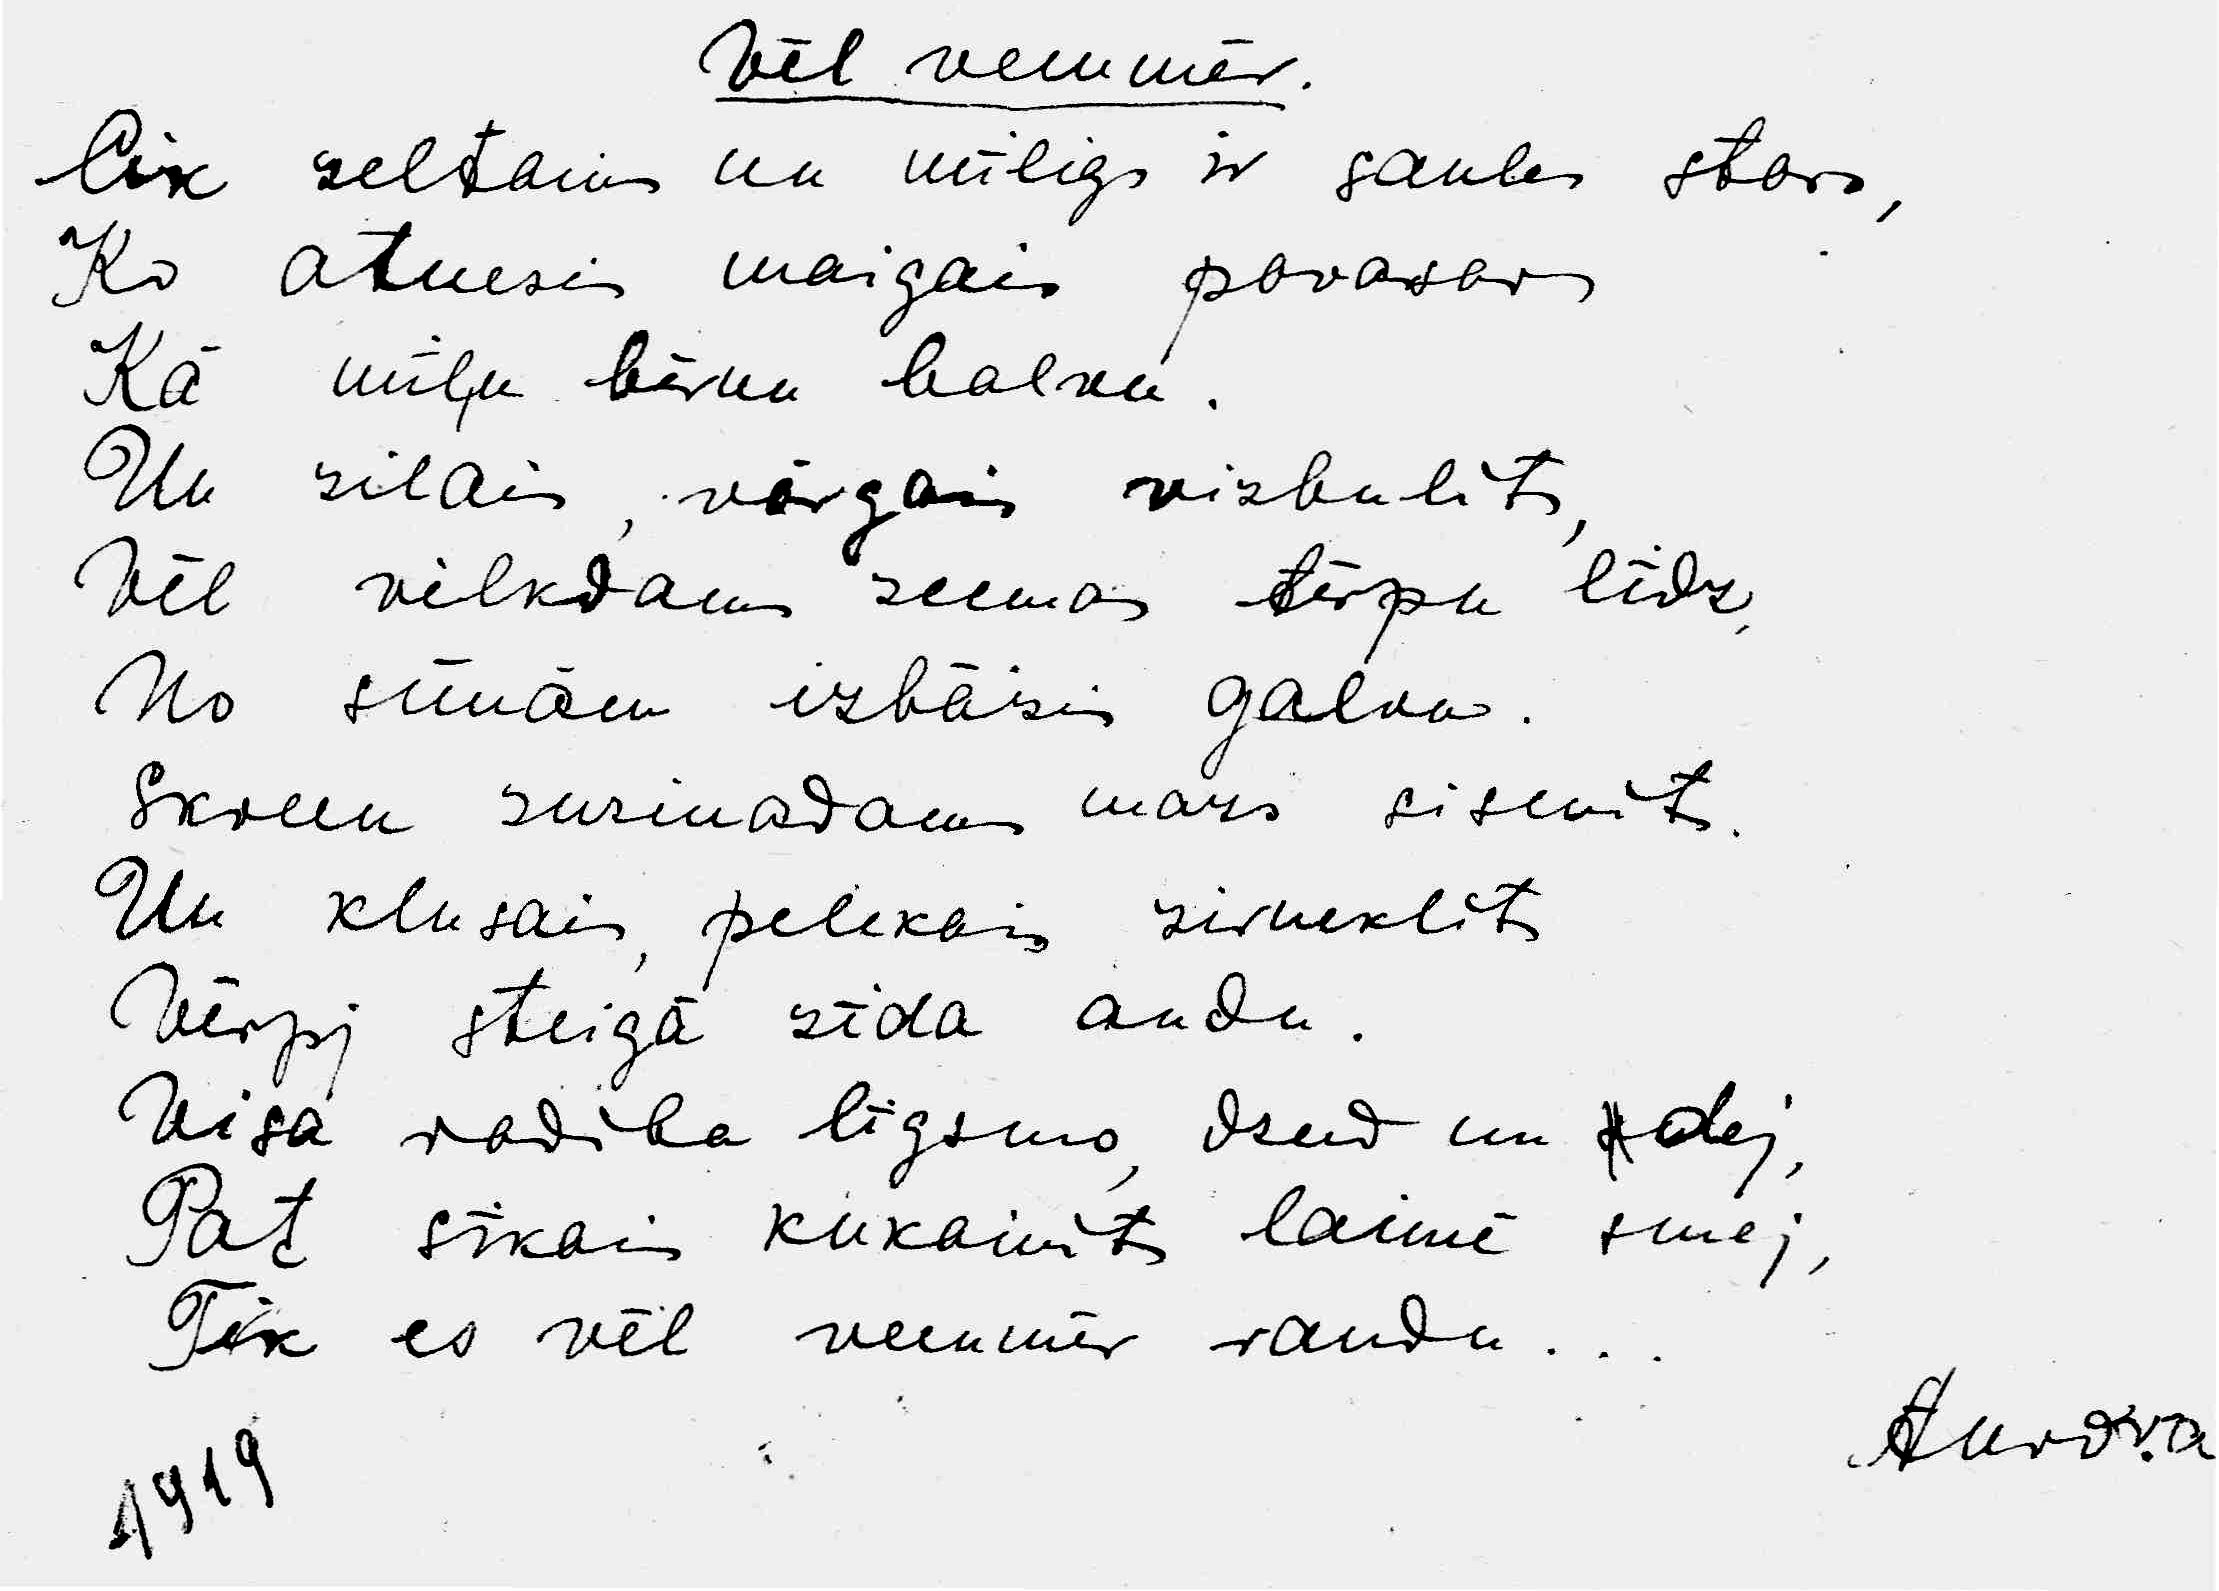 Vēl veenmēr.
Cik zeltains un mīligs ir saules stars,
Ko atnesis maigais pavasars
Kā mīļu bērnu balvu.
Un zilais, vārgais vizbulīts,
Vēl vilkdams zeemas tērpu līdz,
No sūnām izbāzis galvu.
Skreen zuzinadams mazs sisenīts.
Un klusais, pelēkais zirneklīts
Vērpj steigā zīda audu.
Visa radība līgsmo, dzeed un dej,
Pat sīkais kukainīts laimē smej,
Tik es vēl veenmēr raudu...
Aurora
1919